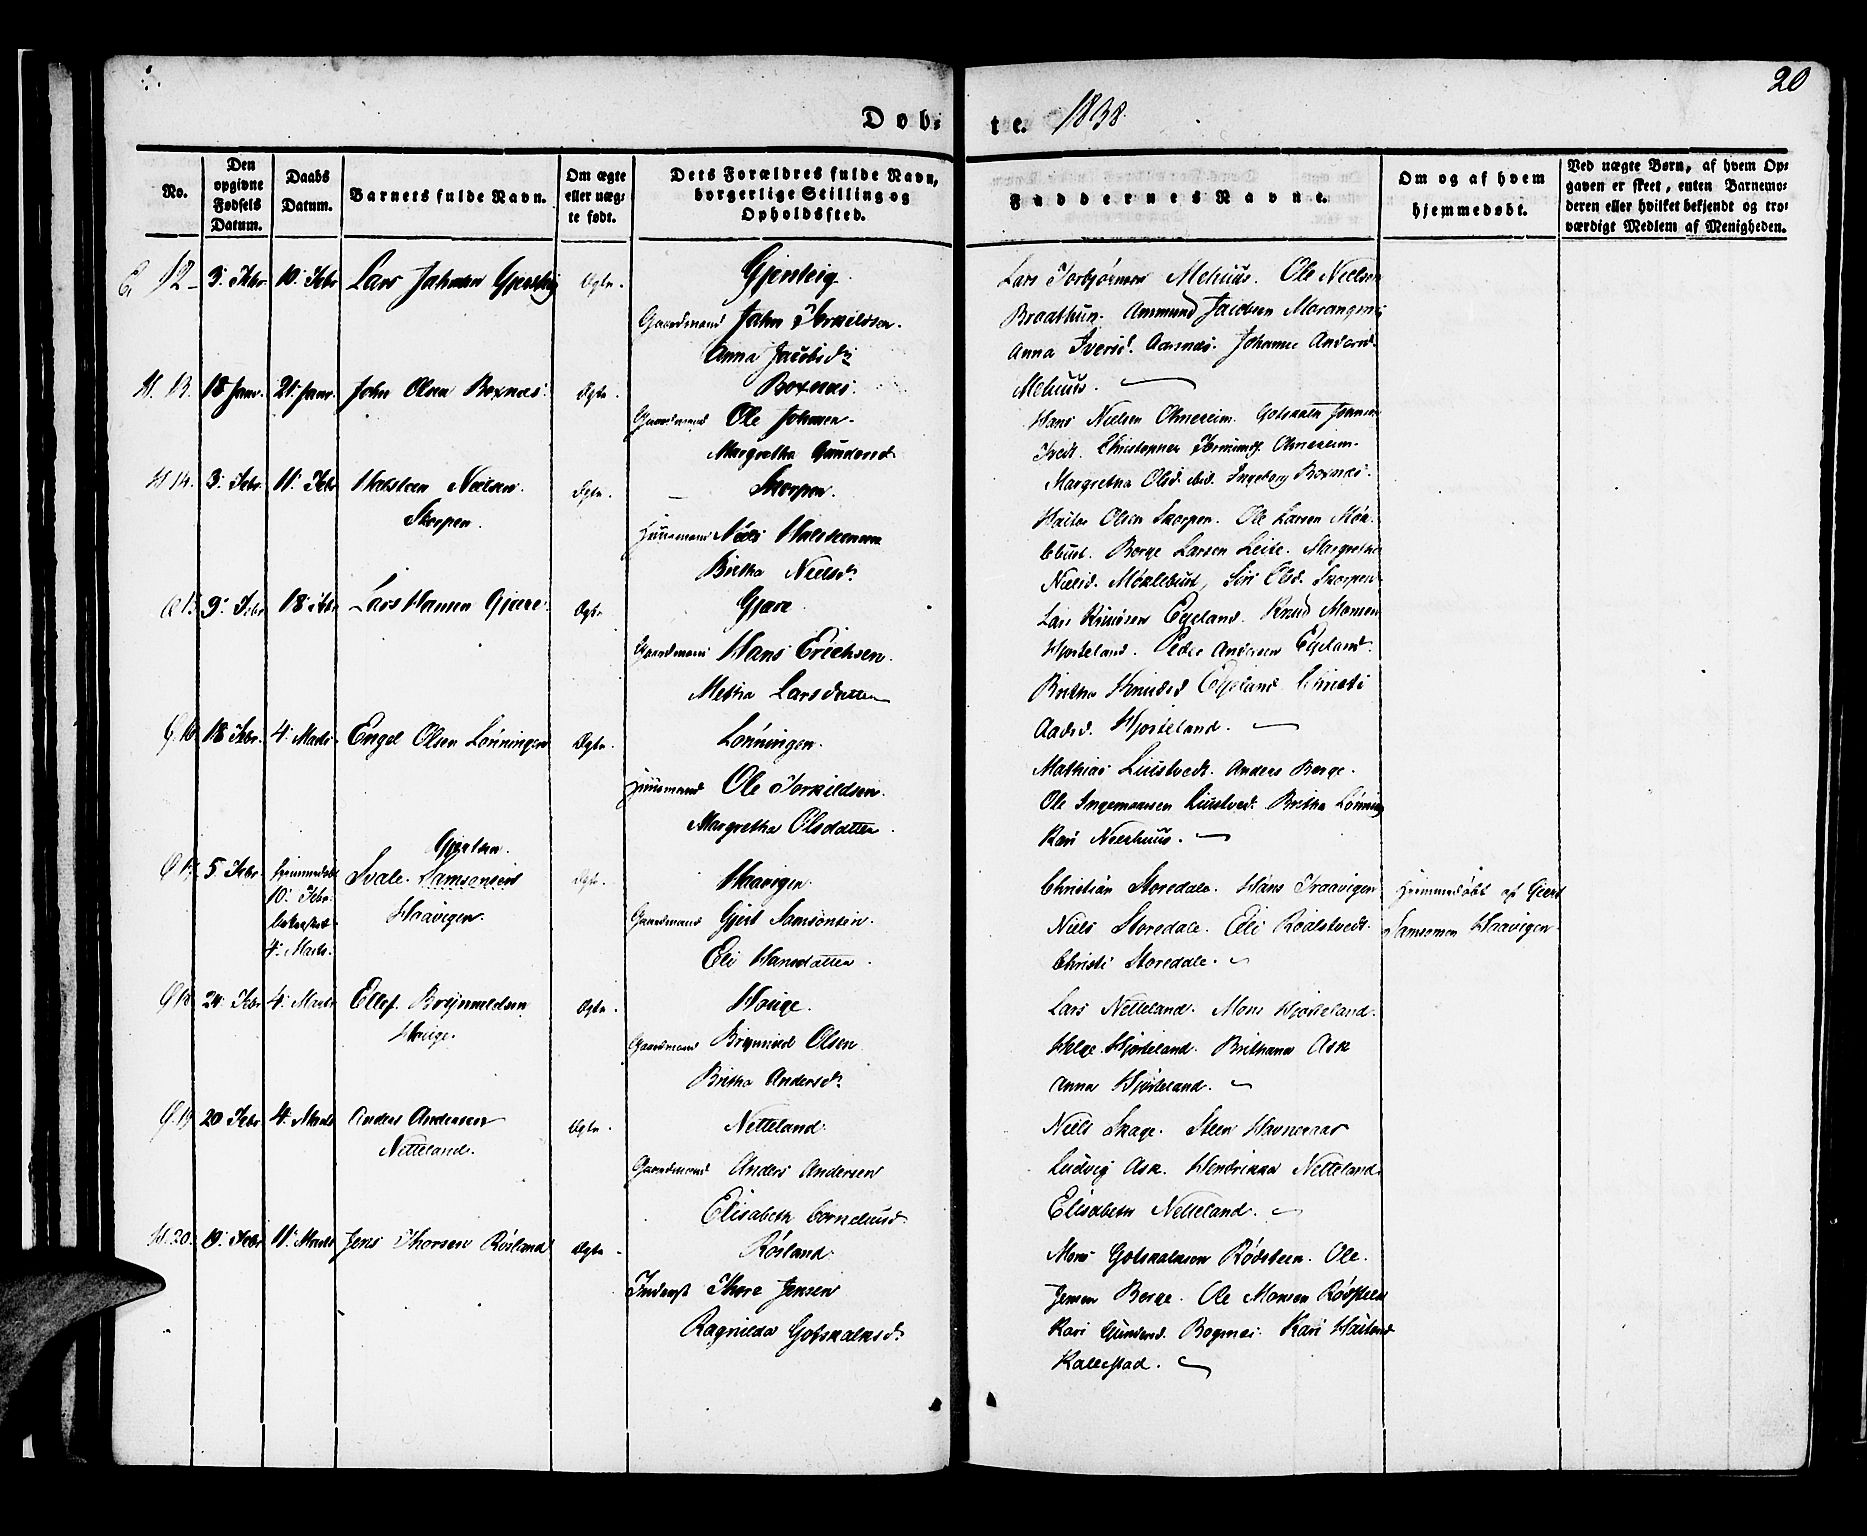 20
Døbte. 1838.
No.
Den opgivne Fødsels Datum.
Daabs Datum.
Barnets fulde Navn.
Om ægte eller uægte født.
Dets Forældres fulde Navn, borgerlige Stilling og Opholdssted.
Faddernes Navne.
Om og af hvem hjemmedøbt.
Ved uægte Børn, af hvem Opgaven er skeet, enten Barnemoderen eller hvilket bekjendt og troværdigt Medlem af Menigheden.
12 3. Febr. 10. Febr Lars Ægte.
Gaardmand
Anna Jacobsdr
Lars Torbjørnsen Mehuus. Ole Nielsen
Braathun. Ammund Jacobsen
Anna Iversd. Aarsnæs. Johanne Andersd.
Mehuus.
H. 13. 18 Janr. 21. Janr. John Olsen Boxnæs. Ægte.
Boxnæs.
Gaardmand Ole Johnsen
Margretha Gundersd
Hans Nielsen Olmeheim. Gotskalk
Tvedt. Christopher Olmeheim.
Margretha Olsd. ibid. Ingeborg Boxnæs.
H 14. 3. Febr. 11. Febr Nielsen Skorpen. Ægte.
Skorpen.
Huusmand Niels
Britha Nielsdr
Olsen Skorpen. Ole Larsen
Børge Larsen Leite. Margretha
Nielsd. Møklebust, Siri Olsd. Skorpen
15 9. Febr 18. Febr Lars Hansen Gjære. Ægte.
Gjære.
Gaardmand Hans Erichsen.
Metha Larsdatter
Lars Egeland. Knud Monsen
Hjorteland. Peder Andersen Egeland.
Britha Knudsd Egeland Christi
Aadsd. Hjorteland.
Q. 16 18 Febr. 4. Marts Engel Olsen Lønningen Ægte.
Lønningen.
Huusmand Ole Torkildsen.
Margretha Olsdatter.
Mathias Liustvedt. Anders Berge.
Ole Ingemansen Liustved. Britha Lønning
Kari Neerhuus.
Q 17. 5 Febr. Hjemmedøbt 10. Febr. 4. Marts. Svale. Samsonsen Gjertsen. Haavigen. Ægte.
Haavigen.
Gaardmand Gjert Samsonsen.
Eli Hansdatter.
Christian Storedale. Hans Traavigen.
Niels Storedale. Eli Rødstvedt.
Christi Storedale.
Hjemmedøbt af Giert
Samsonsen Haavigen.
Q 18. 24. Febr 4. Marts Ellef. Brynnildsen Houge. Ægte.
Houge.
Gaardmand Brynnild Olsen
Britha Andersdr
Lars Netteland. Mons Hjorteland.
Helge Hjorteland. Brithana Ask
Anna Hjorteland.
Q. 19 20 Febr. 4. Marts Anders Andersen Netteland. Ægte.
Netteland.
Gaardmand Anders Andersen
Elisabeth Corneliusd
Niels Skage. Steen Havneraas
Ludvig Ask. Hendrikka Netteland.
Elisabeth Netteland.
H. 20. 19. Febr 11. Marts Jens Thorsen Røsland Ægte.
Røsland.
Inderst Thore Jensen
Ragnilda Gotskalksd.
Mons Gotskalksen Rødsteen. Ole.
Jensen Berge. Ole Monsen Rødsteen
Kari Gundersd. Bognæs. Kari
Kallestad.